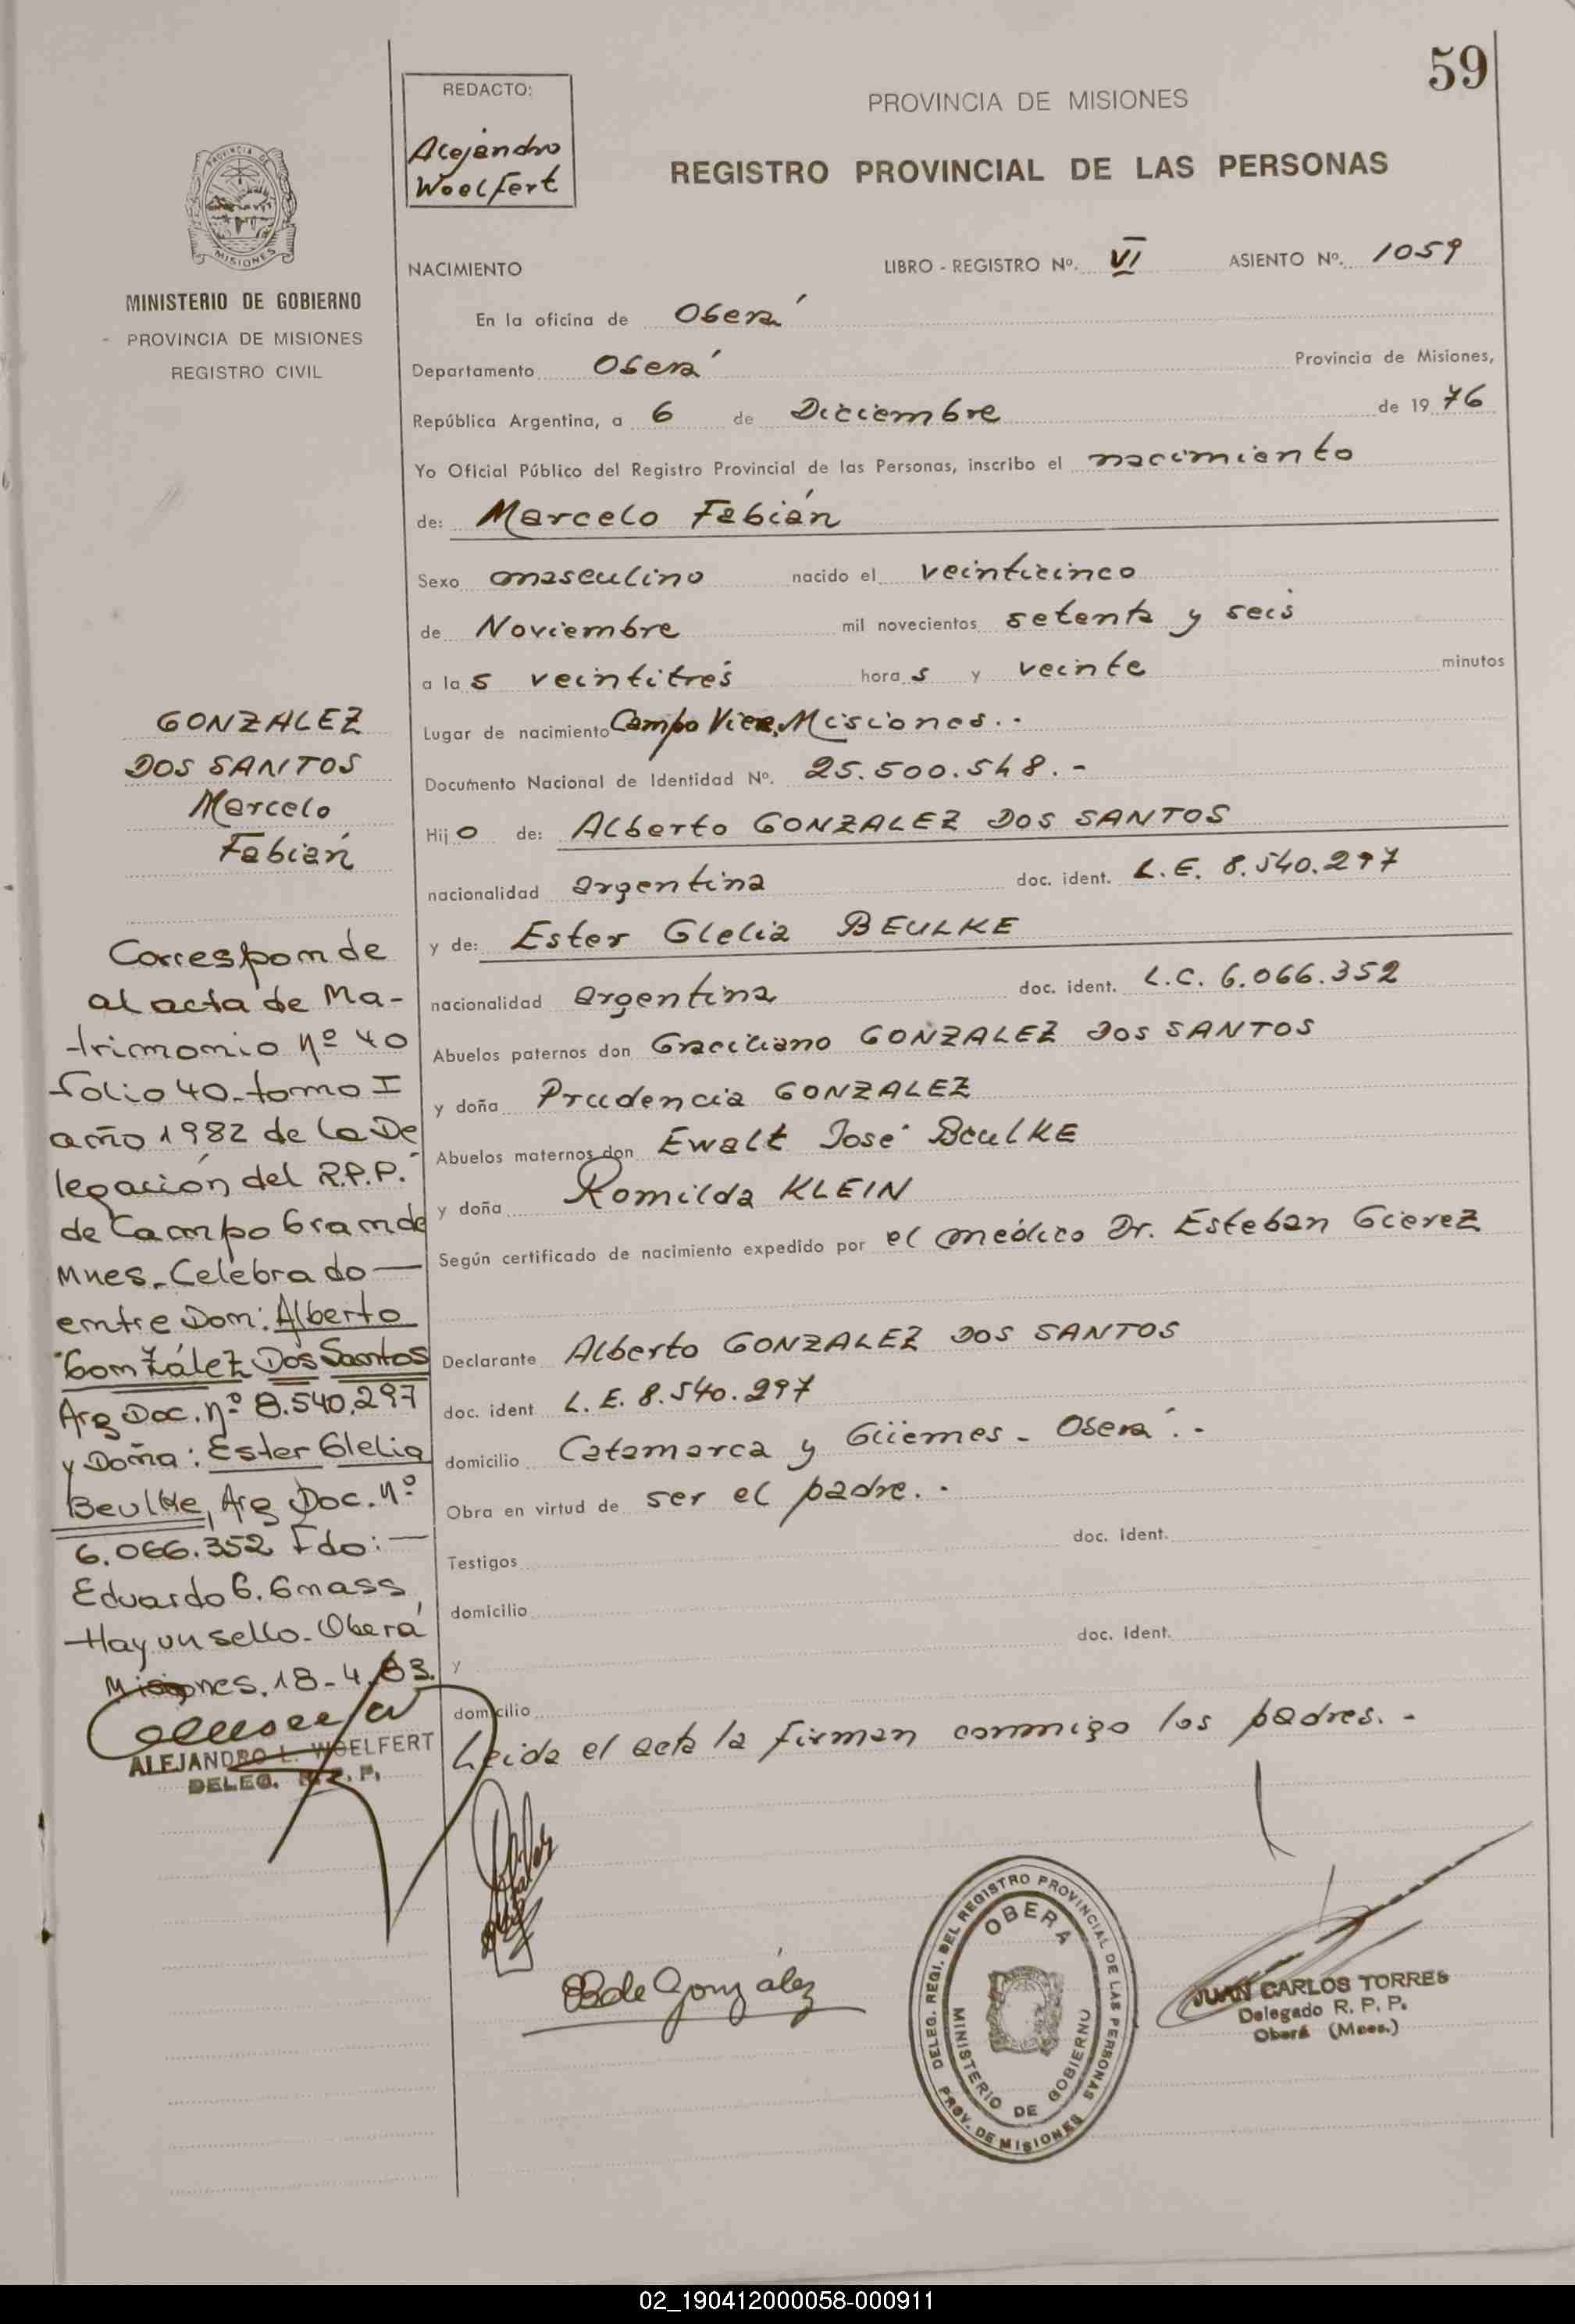 59
REDACTO:
Alejandro
Woelfert
PROVINCIA DE MISIONES
REGISTRO PROVINCIAL DE LAS PERSONAS
PROVINCIA DE
MISIONES
MINISTERIO DE GOBIERNO
PROVINCIA DE MISIONES
REGISTRO CIVIL
NACIMIENTO LIBRO - REGISTRO Nº. VI ASIENTO Nº. 1059
En la oficina de Oberá
Departamento Oberá Provincia de Misiones,
República Argentina, a 6 de Diciembre de 1976
Yo Oficial Público del Registro Provincial de las Personas, inscribo el nacimiento
de: Marcelo Fabián
Sexo masculino nacido el veinticinco
de Noviembre mil novecientos setenta y seis
a las veintitrés horas y veinte minutos
Lugar de nacimiento Campo Viera, Misiones.-
Documento Nacional de Identidad Nº. 25.500.548.-
Hijo de: Alberto GONZALEZ DOS SANTOS
nacionalidad argentina doc. ident. L.E. 8.540.297
y de: Ester Glelia BEULKE
nacionalidad argentina doc. ident. L.C. 6.066.352
Abuelos paternos don Graciliano GONZALEZ DOS SANTOS
y doña Prudencia GONZALEZ
Abuelos maternos don Ewalt José BeulKE
y doña Romilda KLEIN
Según certificado de nacimiento expedido por el médico Dr. Esteban Gierez
Declarante Alberto GONZALEZ DOS SANTOS
doc. ident L.E. 8.540.297
domicilio Catamarca y Güemes - Oberá.-
Obra en virtud de ser el padre.-
doc. ident.
Testigos
domicilio
doc. ident.
y
domicilio
Leida el acta la firman conmigo los padres.-
GONZALEZ
DOS SANTOS
Marcelo
Fabián
Corresponde
al acta de Ma-
trimonio nº 40
folio 40-tomo I
año 1982 de la De
legación del R.P.P.
de Campo Grande
Mnes-Celebrado—
entre Don: Alberto
González Dos Santos
Arg Doc. nº 8.540.297
y Doña: Ester Glelia
Beulke, Arg Doc. nº
6.066.352 Fdo:—
Eduardo G. Gmass
Hay un sello-Oberá
Misiones. 18-4-83.
ALEJANDRO L. WOELFERT
DELEG. R. P. P.
EB de González
DELEG. REGI. DEL REGISTRO PROVINCIAL DE LAS PERSONAS
OBERA
MINISTERIO DE GOBIERNO
PROV. DE MISIONES
JUAN CARLOS TORRES
Delegado R. P. P.
Oberá (Mnes.)
02_190412000058-000911